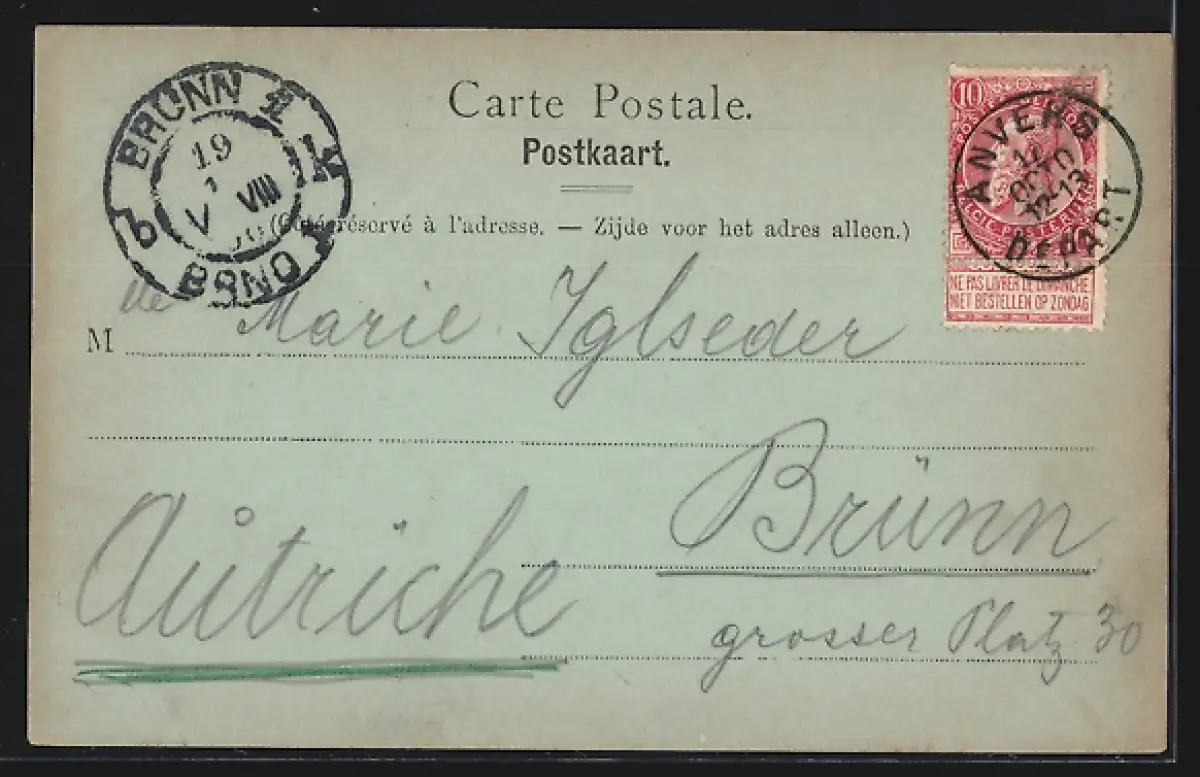 Carte Postale.
Postkaart.
(Côté réservé à l'adresse. — Zijde voor het adres alleen.)
BRÜNN 1
19
V VIII
BRNO
10
NE PAS LIVRER LE DIMANCHE
NIET BESTELLEN OP ZONDAG
ANVERS
DEPART
M lle Marie Iglseder
Brünn
Autriche
grosser Platz 30